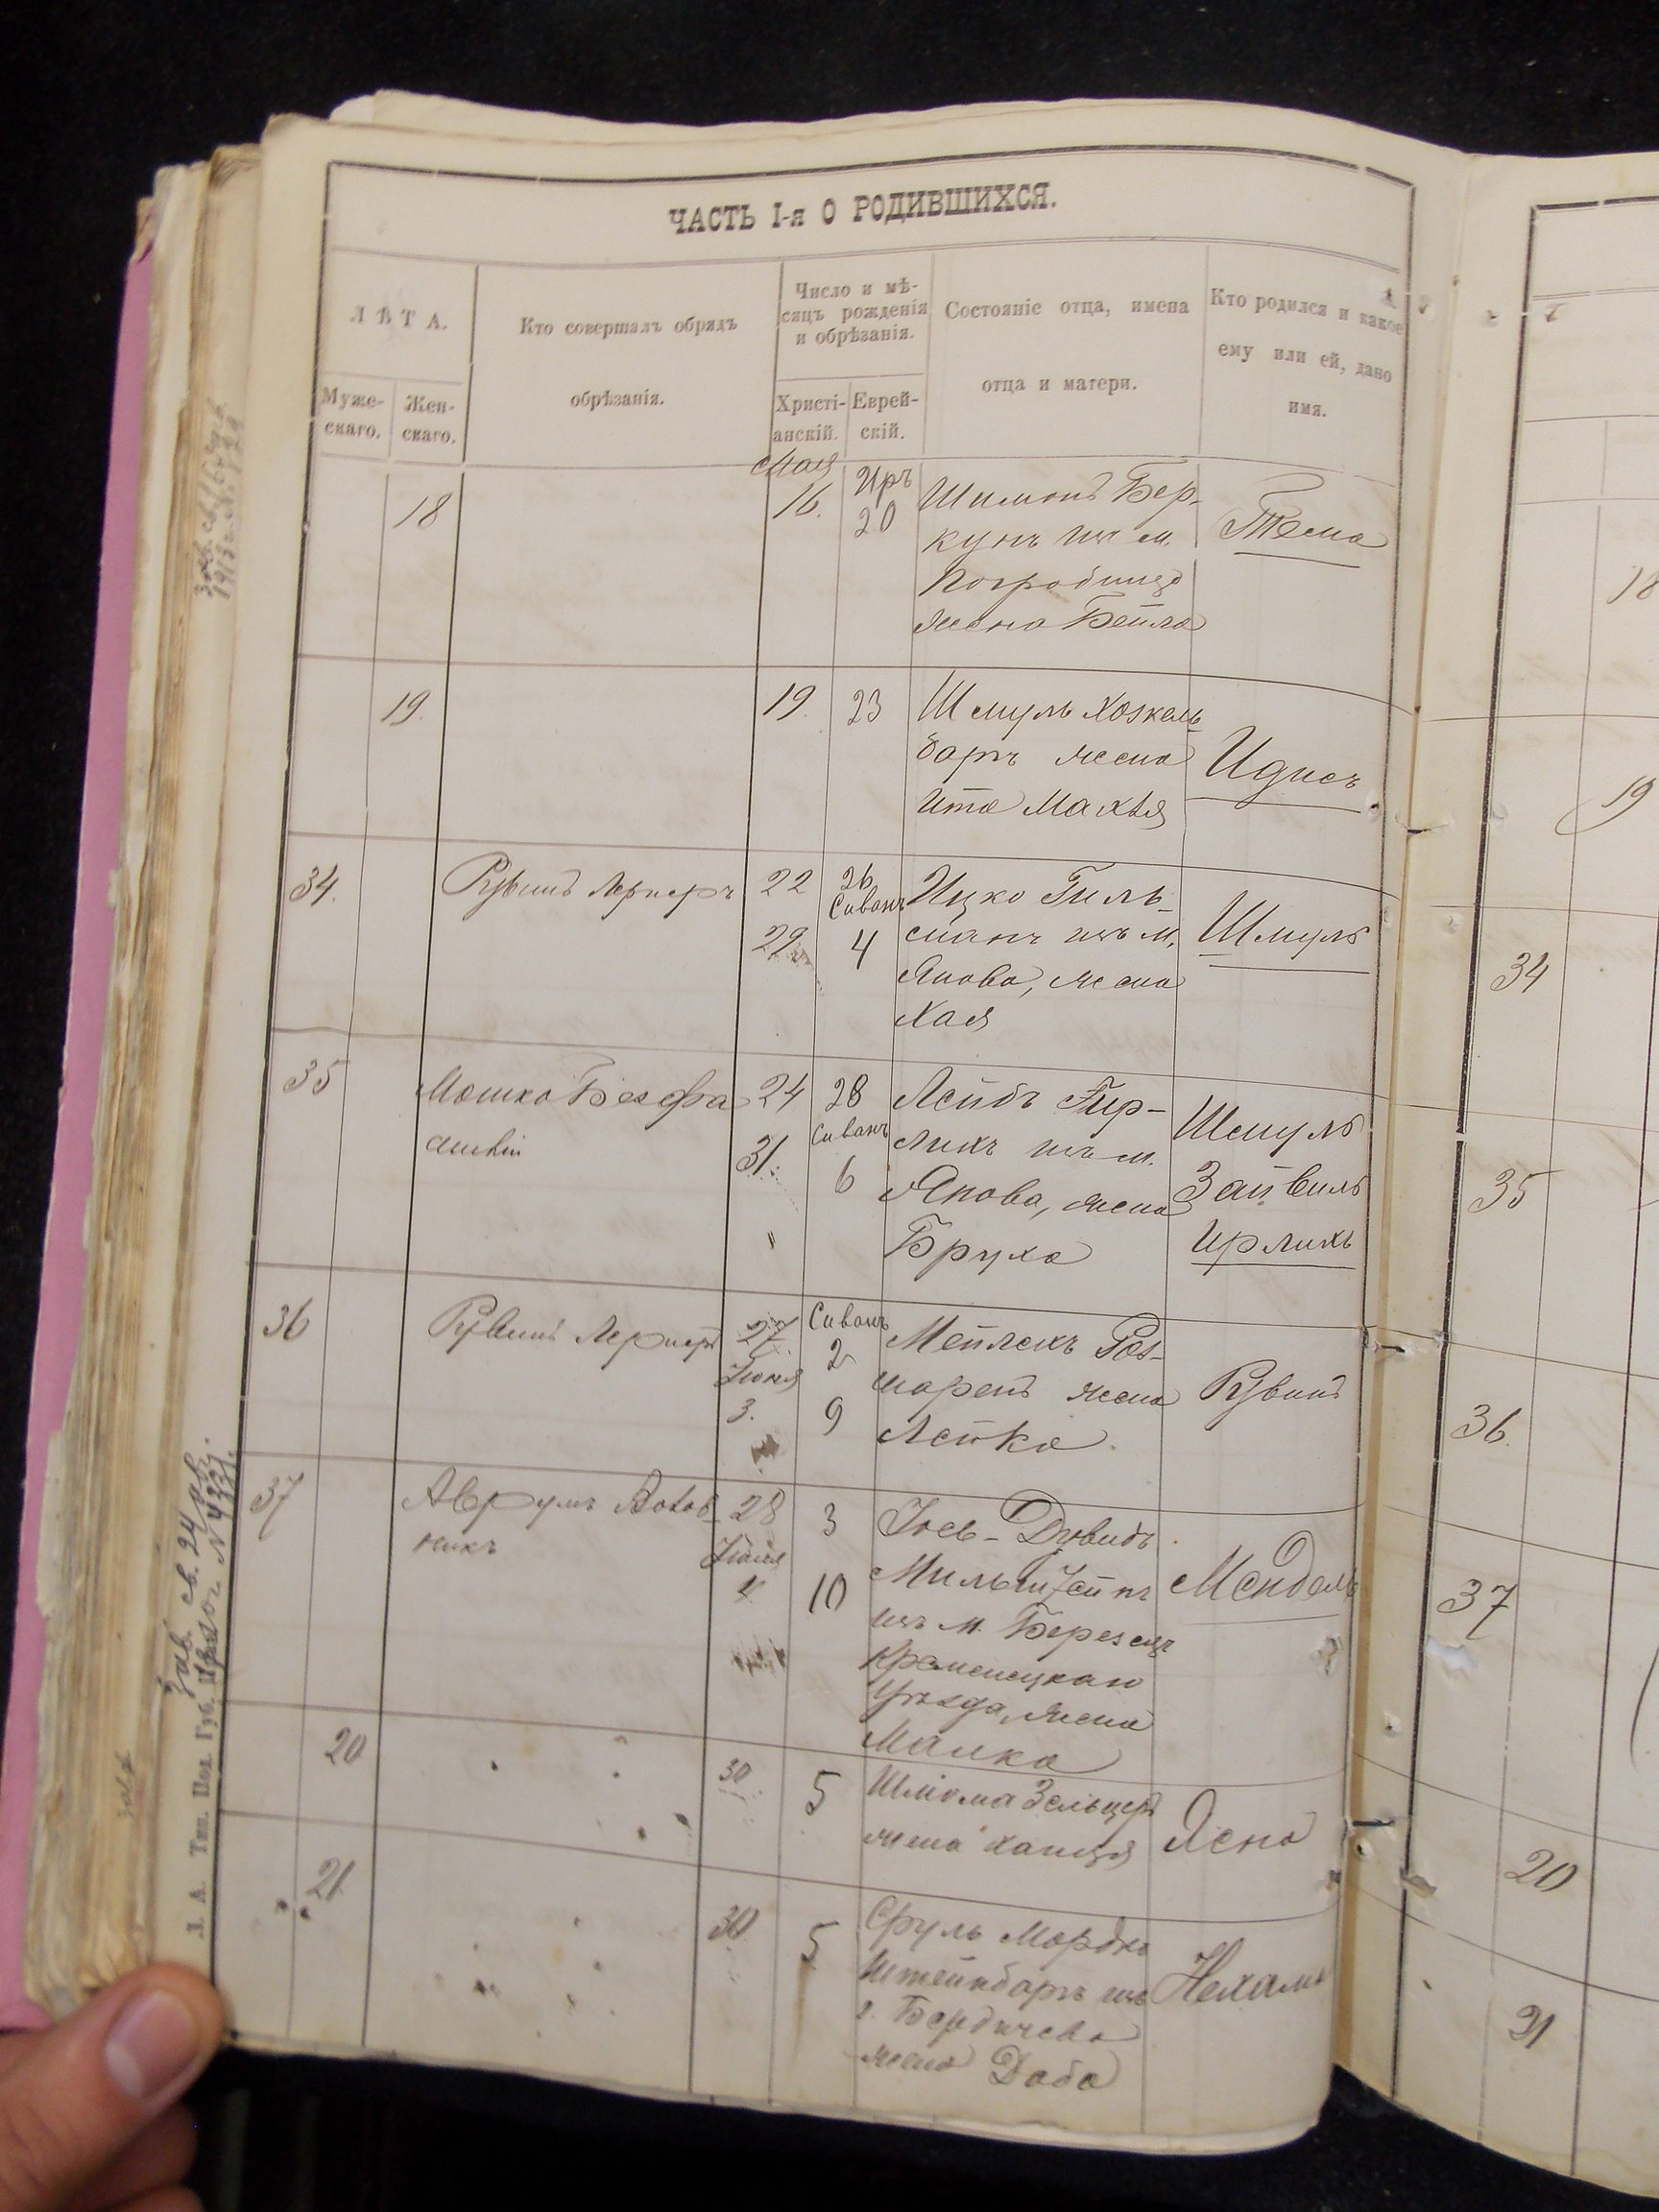 ЧАСТЬ I-я О РОДИВШИХСЯ.
ЛѢТА.
Муже-
скаго.
Жен-
скаго.
Кто совершалъ обрядъ
обрѣзанія.
Число и мѣ-
сяцъ рожденія
и обрѣзанія.
Христі-
анскій.
Еврей-
скій.
Состояніе отца, имена
отца и матери.
Кто родился и какое
ему или ей, дано
имя.
18
Мая
16.
Иръ
20
Шимонъ Бер-
кунъ изъ м.
Погребище
жена Бейла
Тема
18
19.
19.
23
Шмуль Хозкель
жена
Ита Махля
Идисъ
19
34.
Рувинъ Лернеръ
22
29
26
Сиванъ
4
Ицко Гиль-
манъ изъ м.
Янова, жена
Хая
Шмуль
34
35
Мошко
24
31.
28
Сиванъ
6
Лейбъ Гир-
лихъ изъ м.
Янова, жена
Бруха
Шмуль
Зайвиль
Ирлихъ
35
36
Рувинъ Лернеръ
27
Іюня
3.
Сиванъ
2
9
Мейлехъ
жена
Лейка.
Рувинъ
36.
37
Аврумъ
никъ
28
Іюня
4
3
10
Іось-Дувидъ
изъ м. Березецъ
Кременецкаго
уѣзда, жена
Малка
Мендель
37
20
30
5
Шлома Зельцеръ
жена
20
21
30
5
Сруль Мордко
Штейнбаръ изъ
г. Бердичева
жена Доба
Нехама
21
Л. А. Тип. Под. Губ. Прав.